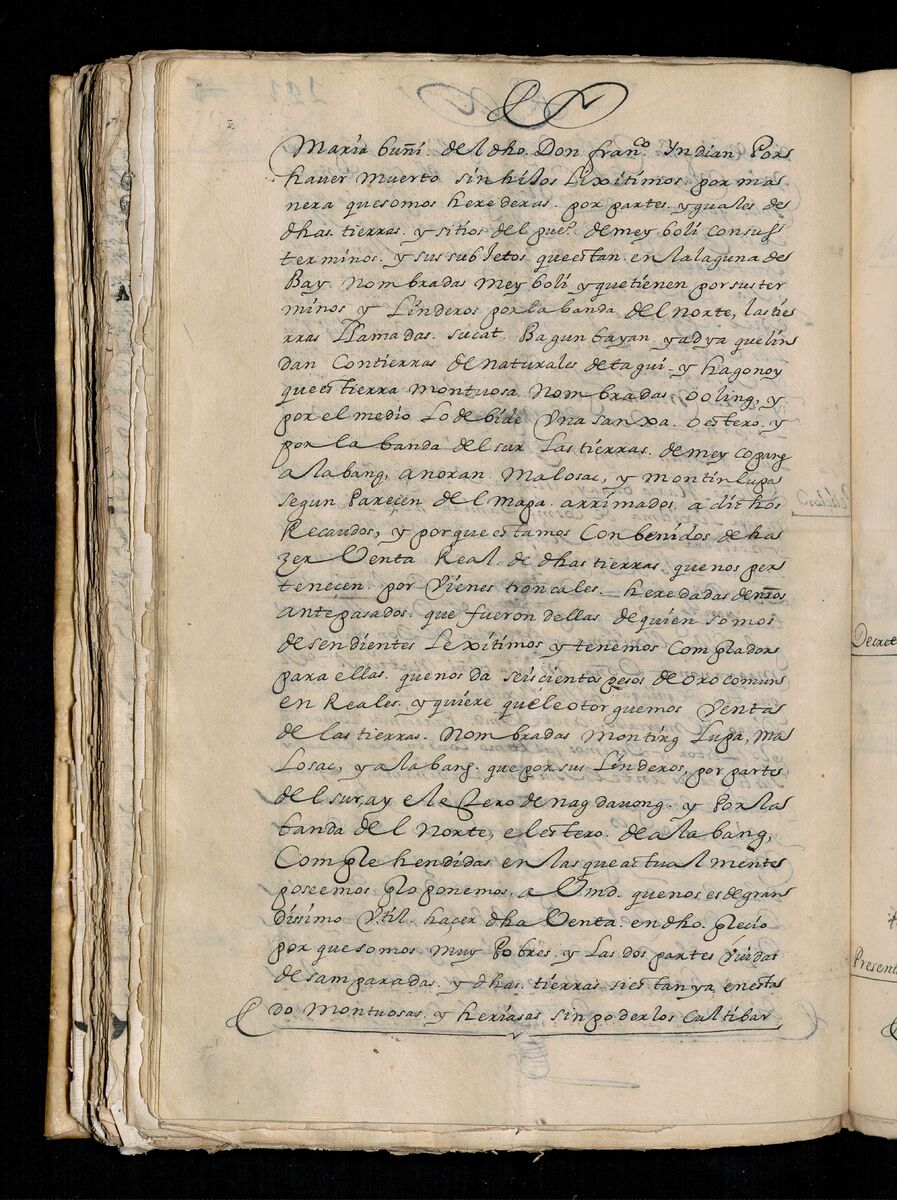 Maria buñi. del dho. Don fran.co Yndian Por
haver muerto sin hilos Lixitimos. por ma
nera quesomos herederas. por partes. yguales de
dhas. tierras. y sitios del pue.o de mey boli consus
terminos. y sus subJetos que estan. en lalaguna de
Bay. Nombradas mey boli. y que tienen por sus ter
minos y Linderos por la banda del norte, las tie
rras Llamadas. sucat. Bagunbayan. yadya que lin
dan Contierras de Naturales de tagui. y hagonoy
que es tierra montuosa Nombradas ooling, y
por el medio Lo debide Vna sanxa. o estero. y
por la banda del sur Las tierras. de mey copang
alabang, anoran. Malosac, y montinlupa
segun Parecen del mapa. arrimados. a dichos
Recaudos, y por que estamos Conbenidos de ha
zer Venta Real. de dhas tierras. que nos per
tenecen. por Vienes troncales. heredadas de nros
antepasados. que fueron dellas de quien somos
desendientes Lexitimos y tenemos Complador
para ellas. que nos da seiscientos pesos de oro comun
en Reales. y quiere que le otorguemos Venta
de las tierras. Nombradas Monting Lupa, ma
Losac, y alabang. que por sus Linderos, por parte
del sur, ay el eстero de nagdavong. y Por la
banda del Norte, el estero. de alabang,
Complehendidas en las que actualmente
poseemos plo ponemos. a Vmd. que nos es de gran
dissimo Vtil. hacer dha Venta. en dho. plecio
por que somos muy Pobres. y Las dos partes Viudas
desamparadas. y dhas. tierras siestan ya en esta
do Montuosas. y heriasas sin poderlos Cultibar
Decret
Present